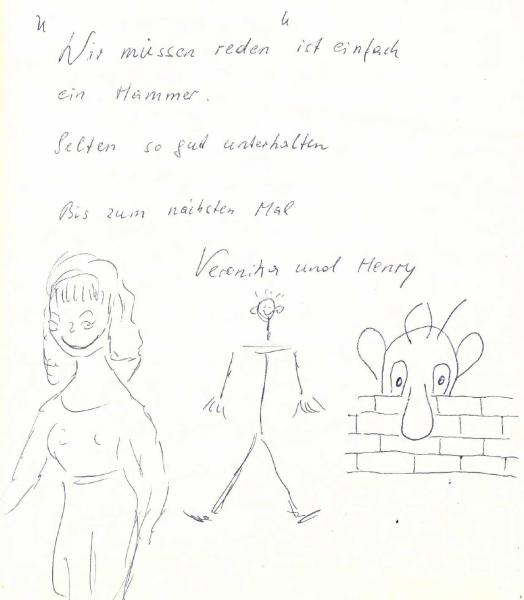 "Wir müssen reden" ist einfach
ein Hammer.
Selten so gut unterhalten
Bis zum nächsten Mal
Veronika und Henry